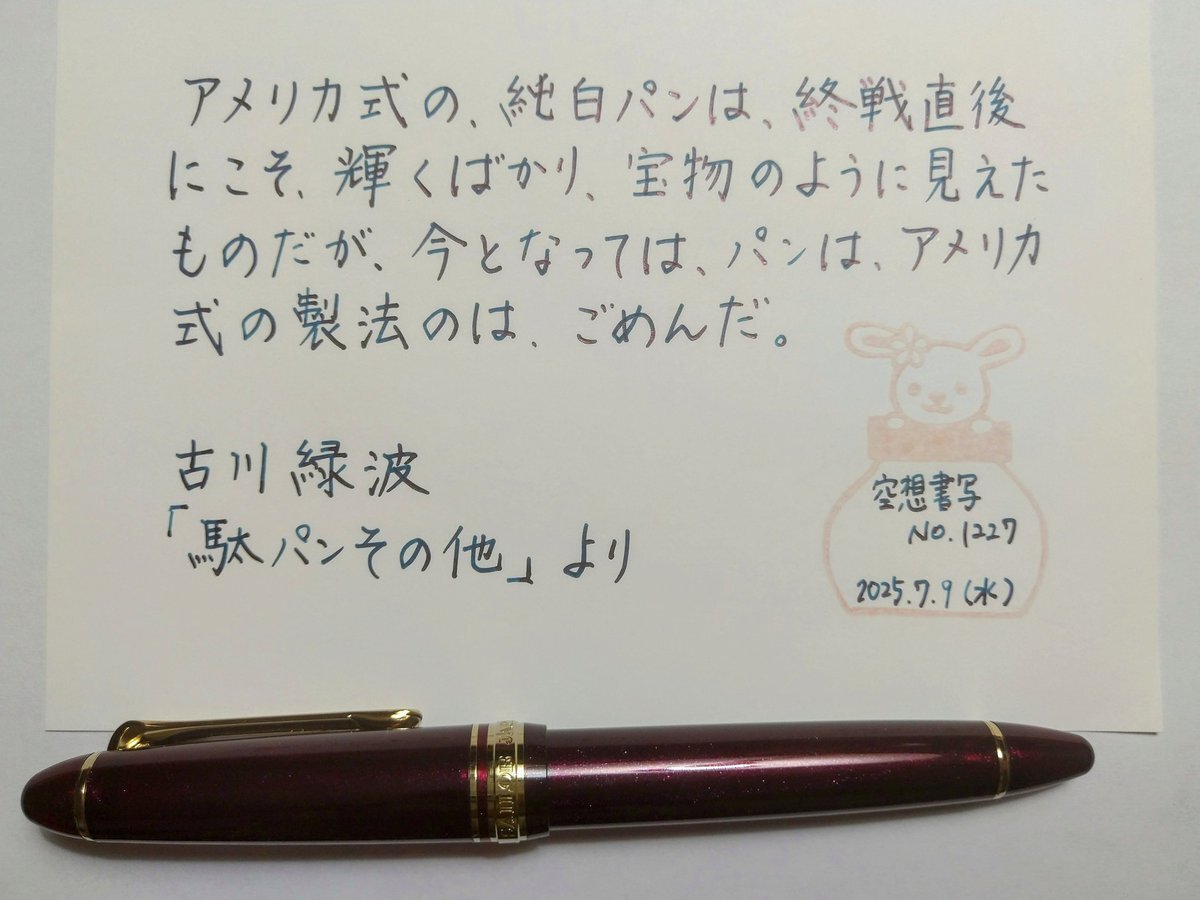 アメリカ式の、純白パンは、終戦直後
にこそ、輝くばかり、宝物のように見えた
ものだが、今となっては、パンは、アメリカ
式の製法のは、ごめんだ。
古川緑波
「駄パンその他」より
空想書写
NO.1227
2025.7.9(水)
SAILOR JAPAN